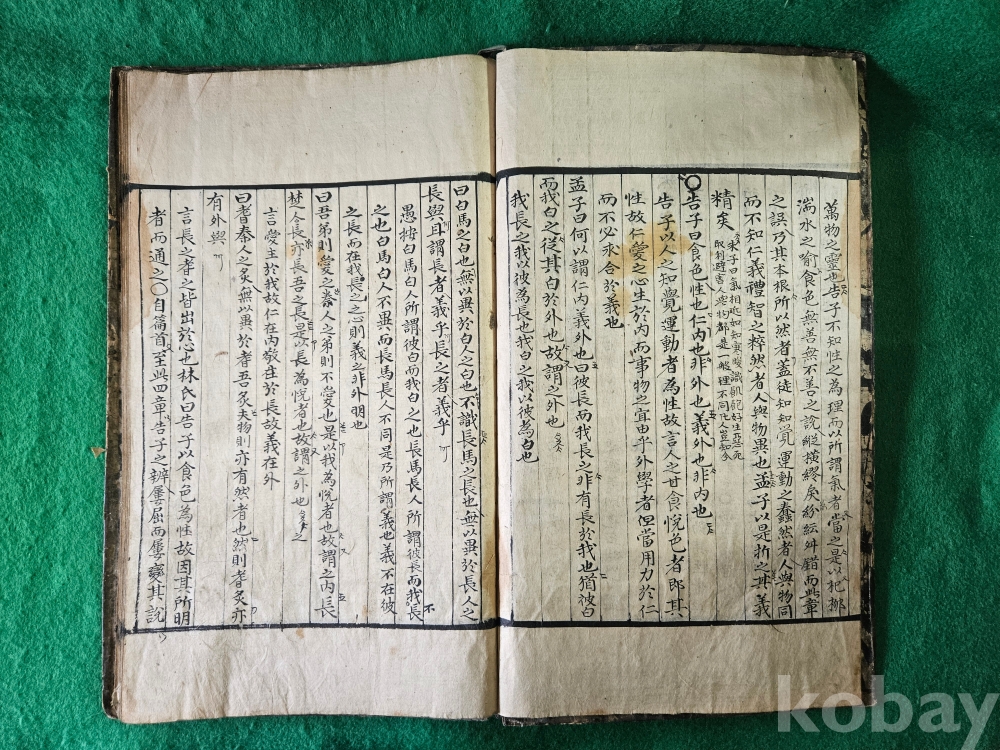 萬物之靈也告子不知性之為理而以所謂氣者當之是以杞柳
湍水之喻食色無善無不善之說縱橫繆戾紛紜舛錯而此章
之誤乃其本根所以然者蓋徒知知覺運動之蠢然者人與物同
而不知仁義禮智之粹然者人與物異也孟子以是折之其義
精矣
告子曰食色性也仁內也非外也義外也非內也
告子以人之知覺運動者為性故言人之甘食悅色者即其
性故仁愛之心生於內而事物之宜由乎外學者但當用力於仁
而不必求合於義也
孟子曰何以謂仁內義外也曰彼長而我長之非有長於我也猶彼白
而我白之從其白於外也故謂之外也
我長之我以彼為長也我白之我以彼為白也
曰白馬之白也無以異於白人之白也不識長馬之長也無以異於長人之
長與且謂長者義乎長之者義乎
愚按白馬白人所謂彼白而我白之也長馬長人所謂彼長而我長
之也白馬白人不異而長馬長人不同是乃所謂義也義不在彼
之長而在我長之之心則義之非外明也
曰吾弟則愛之秦人之弟則不愛也是以我為悅者也故謂之內長
楚人之長亦長吾之長是以長為悅者也故謂之外也
言愛主於我故仁在內敬主於長故義在外
曰耆秦人之炙無以異於耆吾炙夫物則亦有然者也然則耆炙亦
有外與
言長之耆之皆出於心也林氏曰告子以食色為性故因其所明
者而通之〇自篇首至此四章告子之辨屢屈而屢變其說
kobay